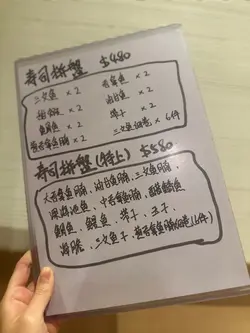 寿司拼盤 $480
三文魚 × 2
吞拿魚 × 2
× 2
油甘魚 × 2
鯛魚 × 2
帶子 × 2
吞拿魚 × 2
三文魚 × 6件
寿司拼盤(特上) $580
大吞拿魚腩, 油甘魚腩, 三文魚腩,
深海池魚, 中吞拿魚腩, 醋鯖魚
鯛魚, 魚, 帶子, 玉子,
海膽, 三文魚子, 吞拿魚腩 (6件)